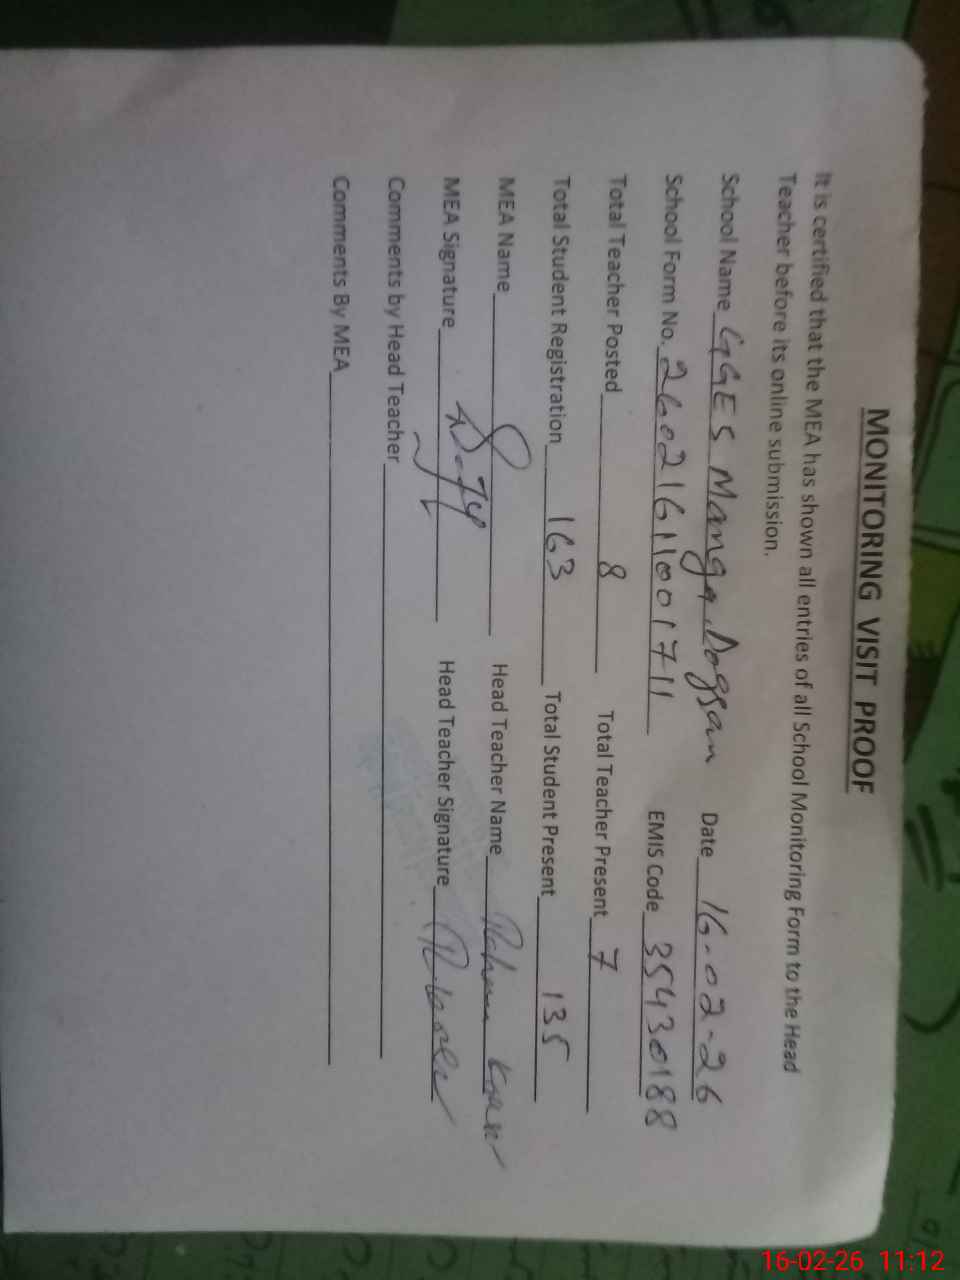 MONITORING VISIT PROOF
It is certified that the MEA has shown all entries of all School Monitoring Form to the Head
Teacher before its online submission.
School Name GGES Manga Dogran Date 16-02-26
School Form No. 26021611001711 EMIS Code 35430188
Total Teacher Posted 8 Total Teacher Present 7
Total Student Registration 163 Total Student Present 135
MEA Name Head Teacher Name
MEA Signature Head Teacher Signature
Comments by Head Teacher
Comments By MEA
16-02-26 11:12